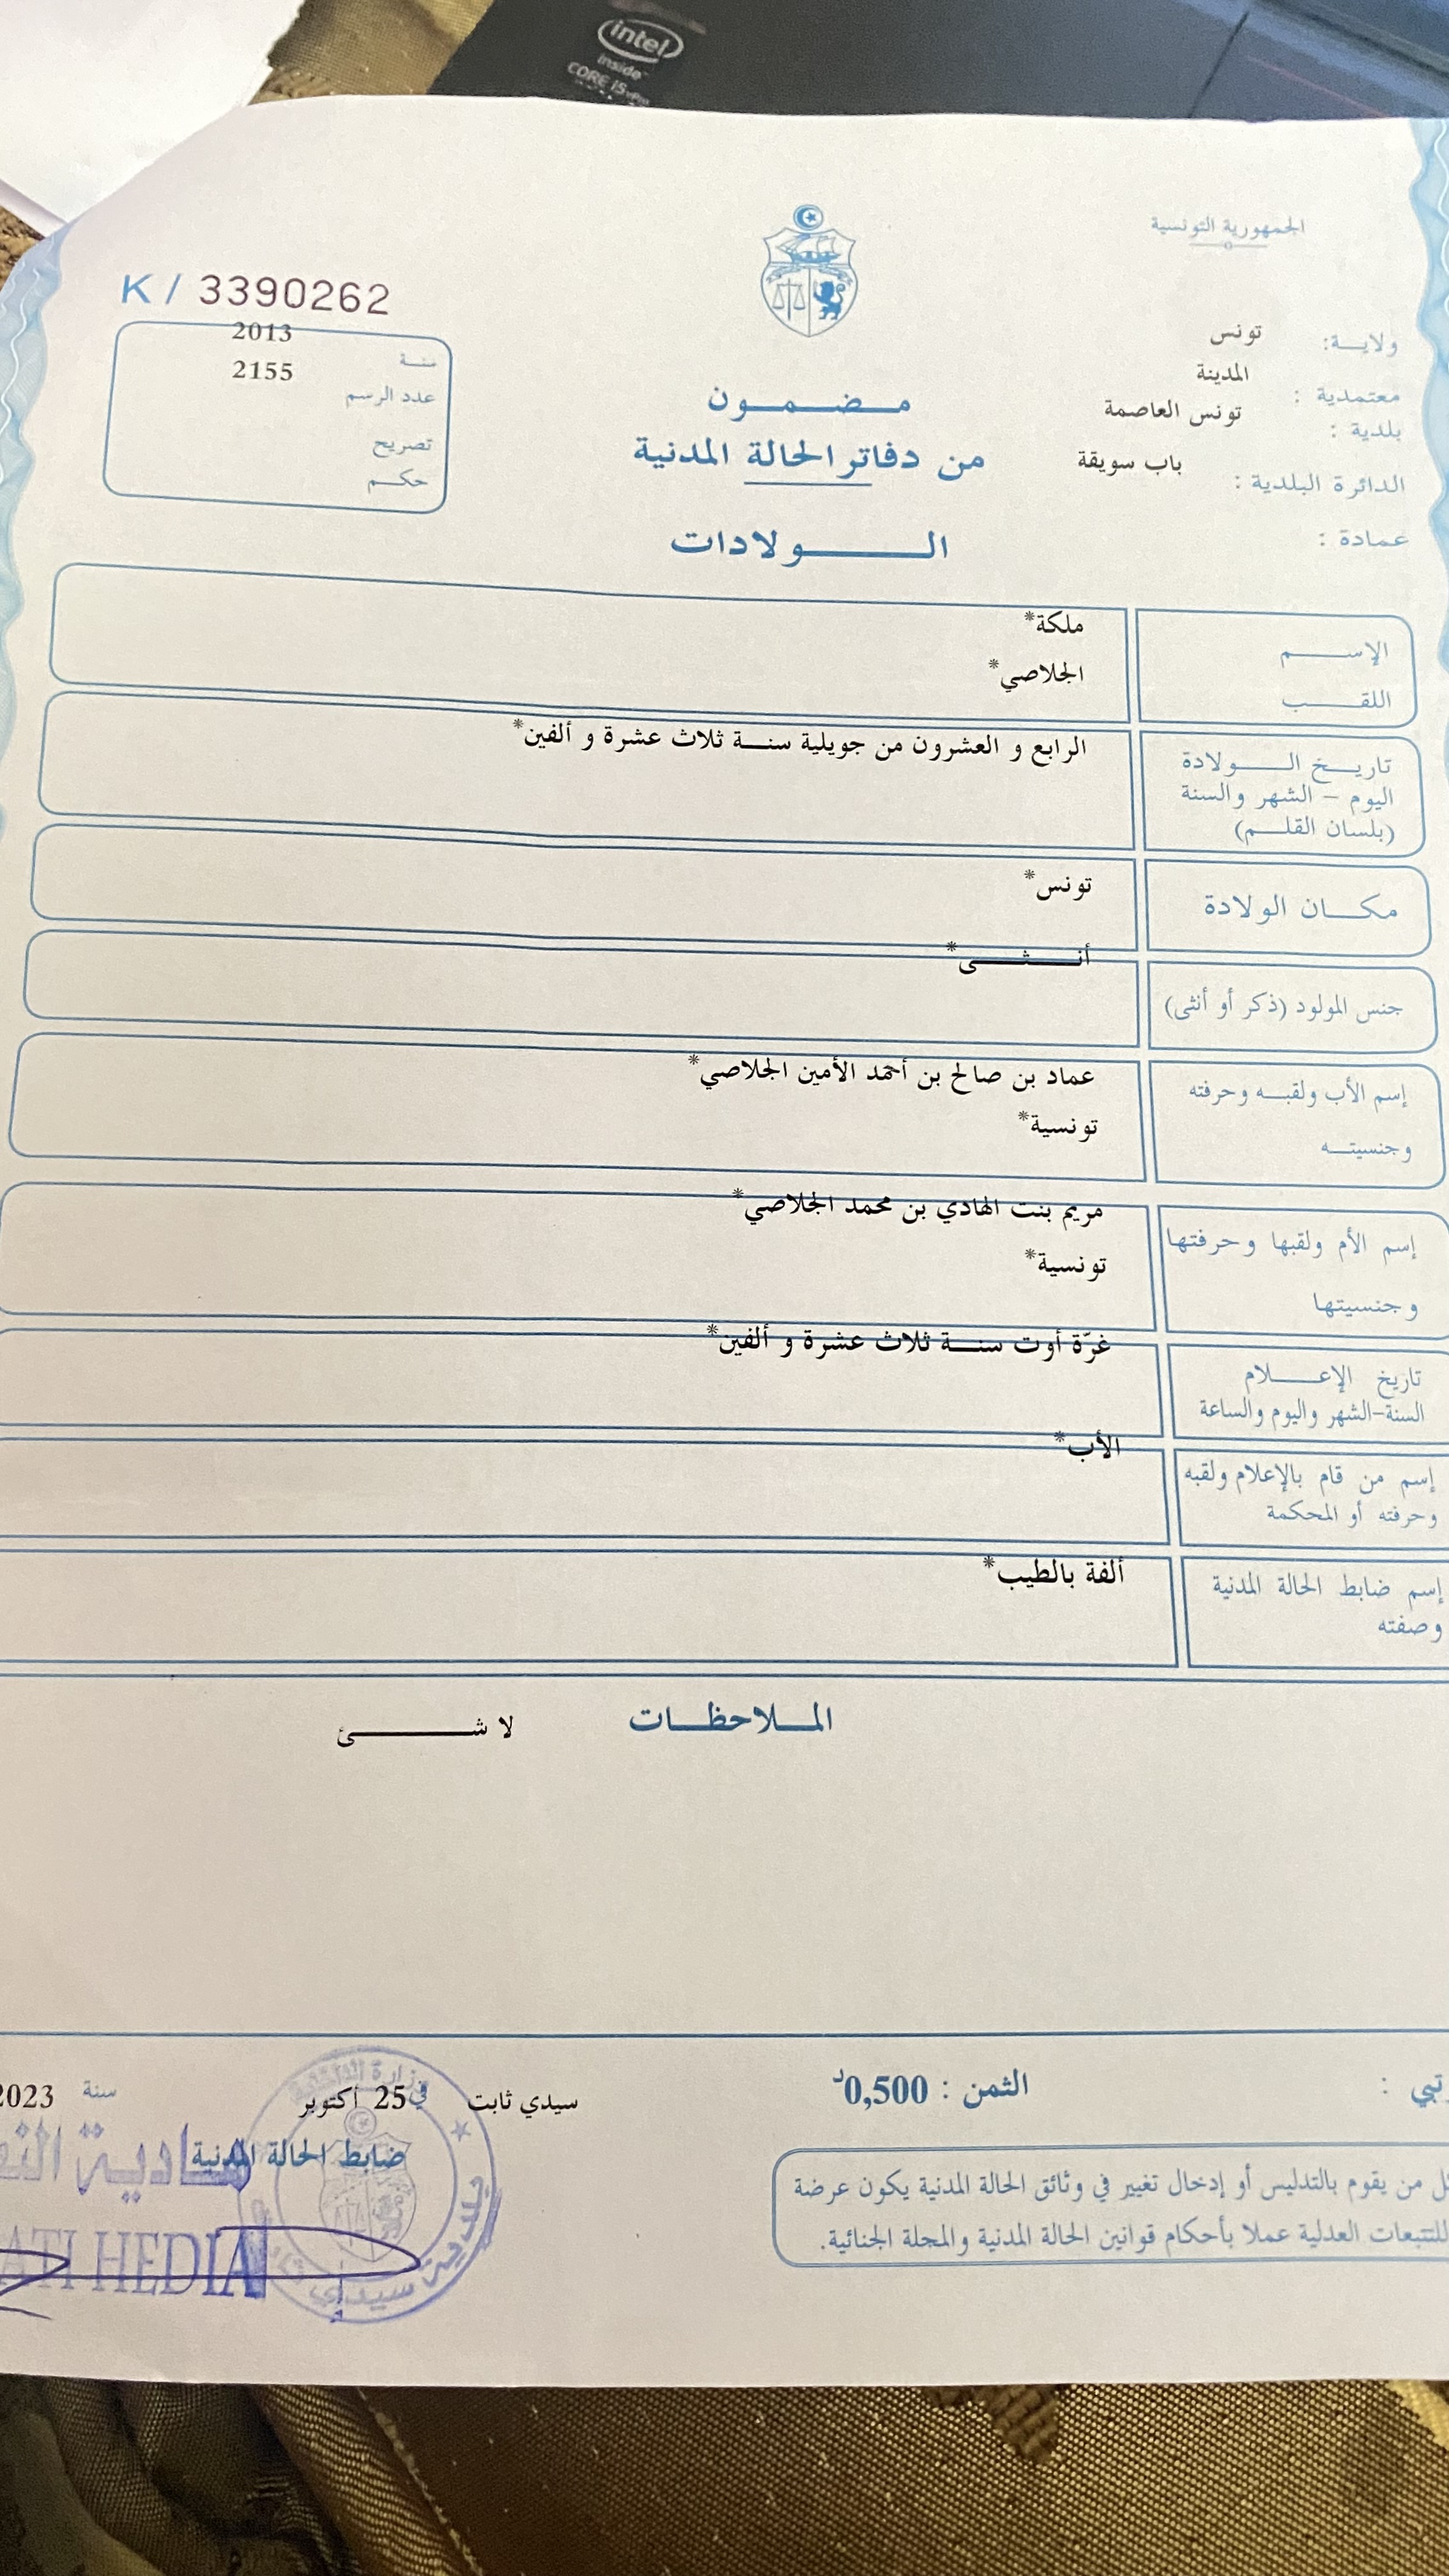 intel
inside
CORE i5 vPro
الجمهورية التونسية
K / 3390262
سنة 2013
عدد الرسم 2155
تصريح
حكم
ولاية: تونس
معتمدية : المدينة
بلدية : تونس العاصمة
الدائرة البلدية : باب سويقة
عمادة :
مضمون
من دفاتر الحالة المدنية
الولادات
الإسم ملكة*
اللقب الجلاصي*
تاريخ الولادة الرابع و العشرون من جويلية سنة ثلاث عشرة و ألفين*
اليوم - الشهر والسنة
(بلسان القلم)
مكان الولادة تونس*
جنس المولود (ذكر أو أنثى) أنثى*
إسم الأب ولقبه وحرفته عماد بن صالح بن أحمد الأمين الجلاصي*
وجنسيته تونسية*
إسم الأم ولقبها وحرفتها مريم بنت الهادي بن محمد الجلاصي*
وجنسيتها تونسية*
تاريخ الإعلام غرّة أوت سنة ثلاث عشرة و ألفين*
السنة-الشهر واليوم والساعة
إسم من قام بالإعلام ولقبه الأب*
وحرفته أو المحكمة
إسم ضابط الحالة المدنية ألفة بالطيب*
وصفته
الملاحظات لا شئ
الثمن : 0,500د
سيدي ثابت في 25 أكتوبر سنة 2023
ضابط الحالة المدنية
هادية
HEDIA
وزارة الداخلية
بلدية سيدي
من يقوم بالتدليس أو إدخال تغيير في وثائق الحالة المدنية يكون عرضة
للتتبعات العدلية عملا بأحكام قوانين الحالة المدنية والمجلة الجنائية.